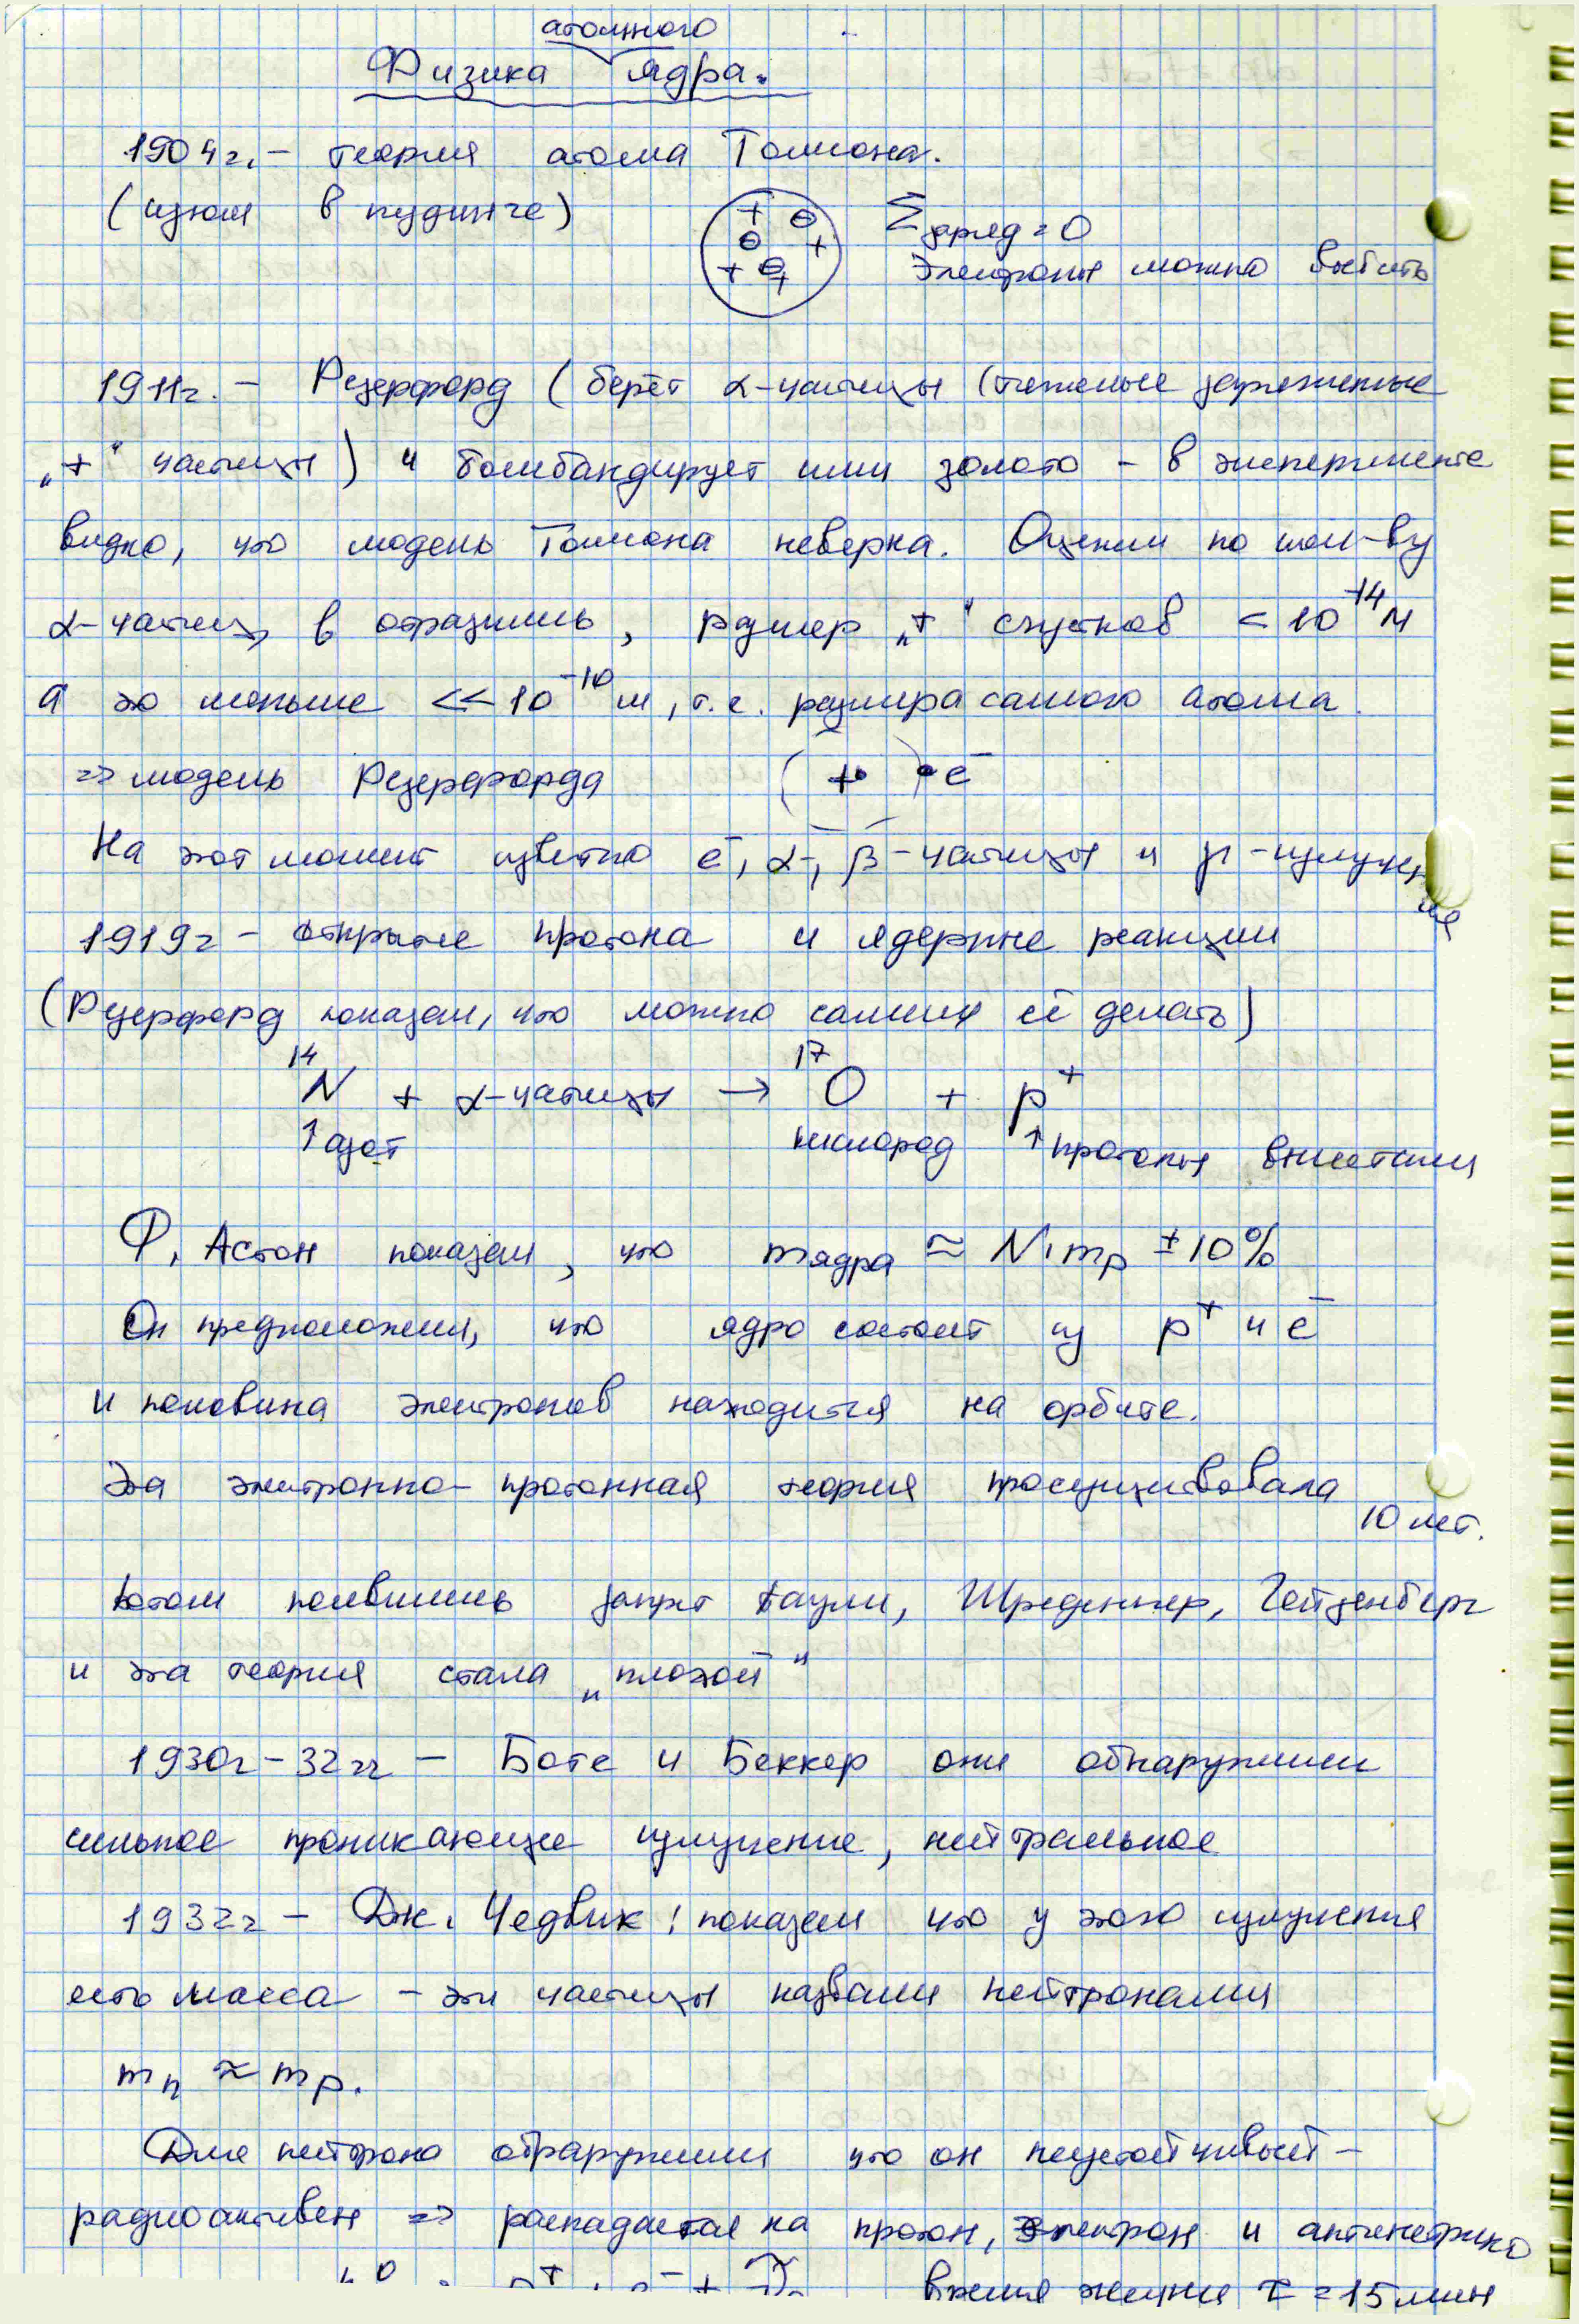 атомного
Физика ядра.
1904г. – теория атома Томсона.
(изюм в пудинге)
+ ⊖ ⊖ + + ⊖ +
Σ заряд = 0
Электроны можно выбить
1911г. – Резерфорд (берёт α-частицы (тяжелые заряженные
„+“ частицы) и бомбандирует ими золото – в эксперименте
видно, что модель Томсона неверна. Оценили по кол-ву
α-частиц, в отразились, размер „+“ сгустков < 10⁻¹⁴ м
а это меньше << 10⁻¹⁰ м, т.е. размера самого атома.
=> модель Резерфорда (+) e⁻
На этот момент известно e⁻, α-, β-частицы и γ-излучения
1919г – открытие протона и ядерные реакции
(Резерфорд показал, что можно самим её делать)
¹⁴N + α-частицы → ¹⁷O + p⁺
↑азот кислород ↑протоны вылетали
Ф. Астон показал, что mядра ≈ N·mp ± 10%
Он предположил, что ядро состоит из p⁺ и e⁻
и половина электронов находится на орбите.
Эта электронно-протонная теория просуществовала
10 лет.
Потом появились запрет Паули, Шредингер, Гейзенберг
и эта теория стала „плохой“
1930г – 32гг – Боте и Беккер они обнаружили
сильное проникающее излучение, нейтральное
1932г – Дж. Чедвик: показал что у этого излучения
есть масса – эти частицы назвали нейтронами
mn ≈ mp.
Для нейтрона обраружили что он неустойчивый –
радиоактивен => распадается на протон, электрон и антинейтрино
время жизни τ = 15 мин